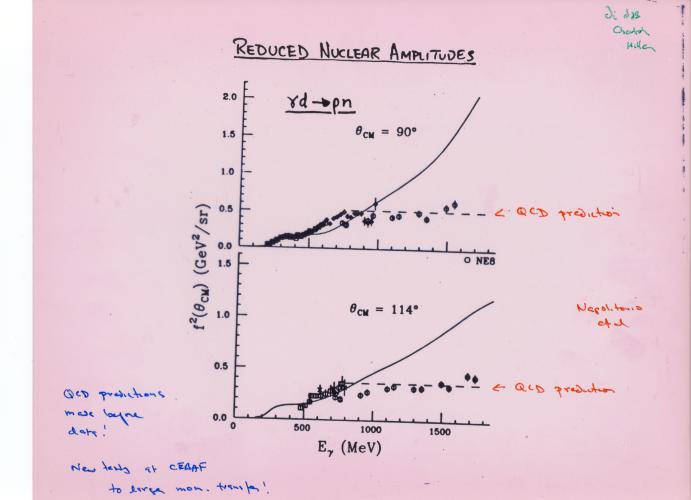 REDUCED NUCLEAR AMPLITUDES
γd → pn
θCM = 90°
2.0
1.5
1.0
0.5
0.0
← QCD prediction
O NE8
f²(θCM) (GeV²/sr)
1.5
θCM = 114°
1.0
0.5
0.0
Napolitano
et al
← QCD prediction
0
500
1000
1500
Eγ (MeV)
QCD predictions
made before
data!
New tests at CEBAF
to large mom. transfer!